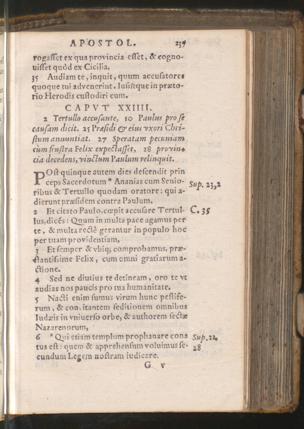 APOSTOL. 239
rogasset ex qua provincia esset, & cogno-
visset quòd ex Cilicia.
35 Audiam te, inquit, quum accusatores
quoque tui advenerint. Iussitque in præto-
rio Herodis custodiri eum.
CAPVT XXIIII.
2 Tertullo accusante, 10 Paulus pro se
causam dicit. 25 Præsidi & eius vxori Chri-
stum annuntiat. 27 Speratam pecuniam
cum frustra Felix expectasset, 28 provin-
cia decedens, vinctum Paulum relinquit.
POst quinque autem dies descendit prin
ceps Sacerdotum * Ananias cum Senio-
ribus & Tertullo quodam oratore: qui a-
dierunt præsidem contra Paulum.
Sup. 23,2
2 Et citato Paulo, cœpit accusare Tertul-
lus, dicēs: Quum in multa pace agamus per
te, & multa rectè gerantur in populo hoc
per tuam providentiam,
C. 35
3 Et semper & vbiq; comprobamus, præ-
stantissime Felix, cum omni gratiarum a-
ctione.
4 Sed ne diutius te detineam, oro te vt
audias nos paucis pro tua humanitate.
5 Nacti enim sumus virum hunc pestife-
rum, & concitantem seditionem omnibus
Iudæis in vniverso orbe, & authorem sectæ
Nazarenorum,
6 * Qui etiam templum prophanare cona
tus est: quem & apprehensum voluimus se-
cundum Legem nostram iudicare.
Sup. 21,
28
G v